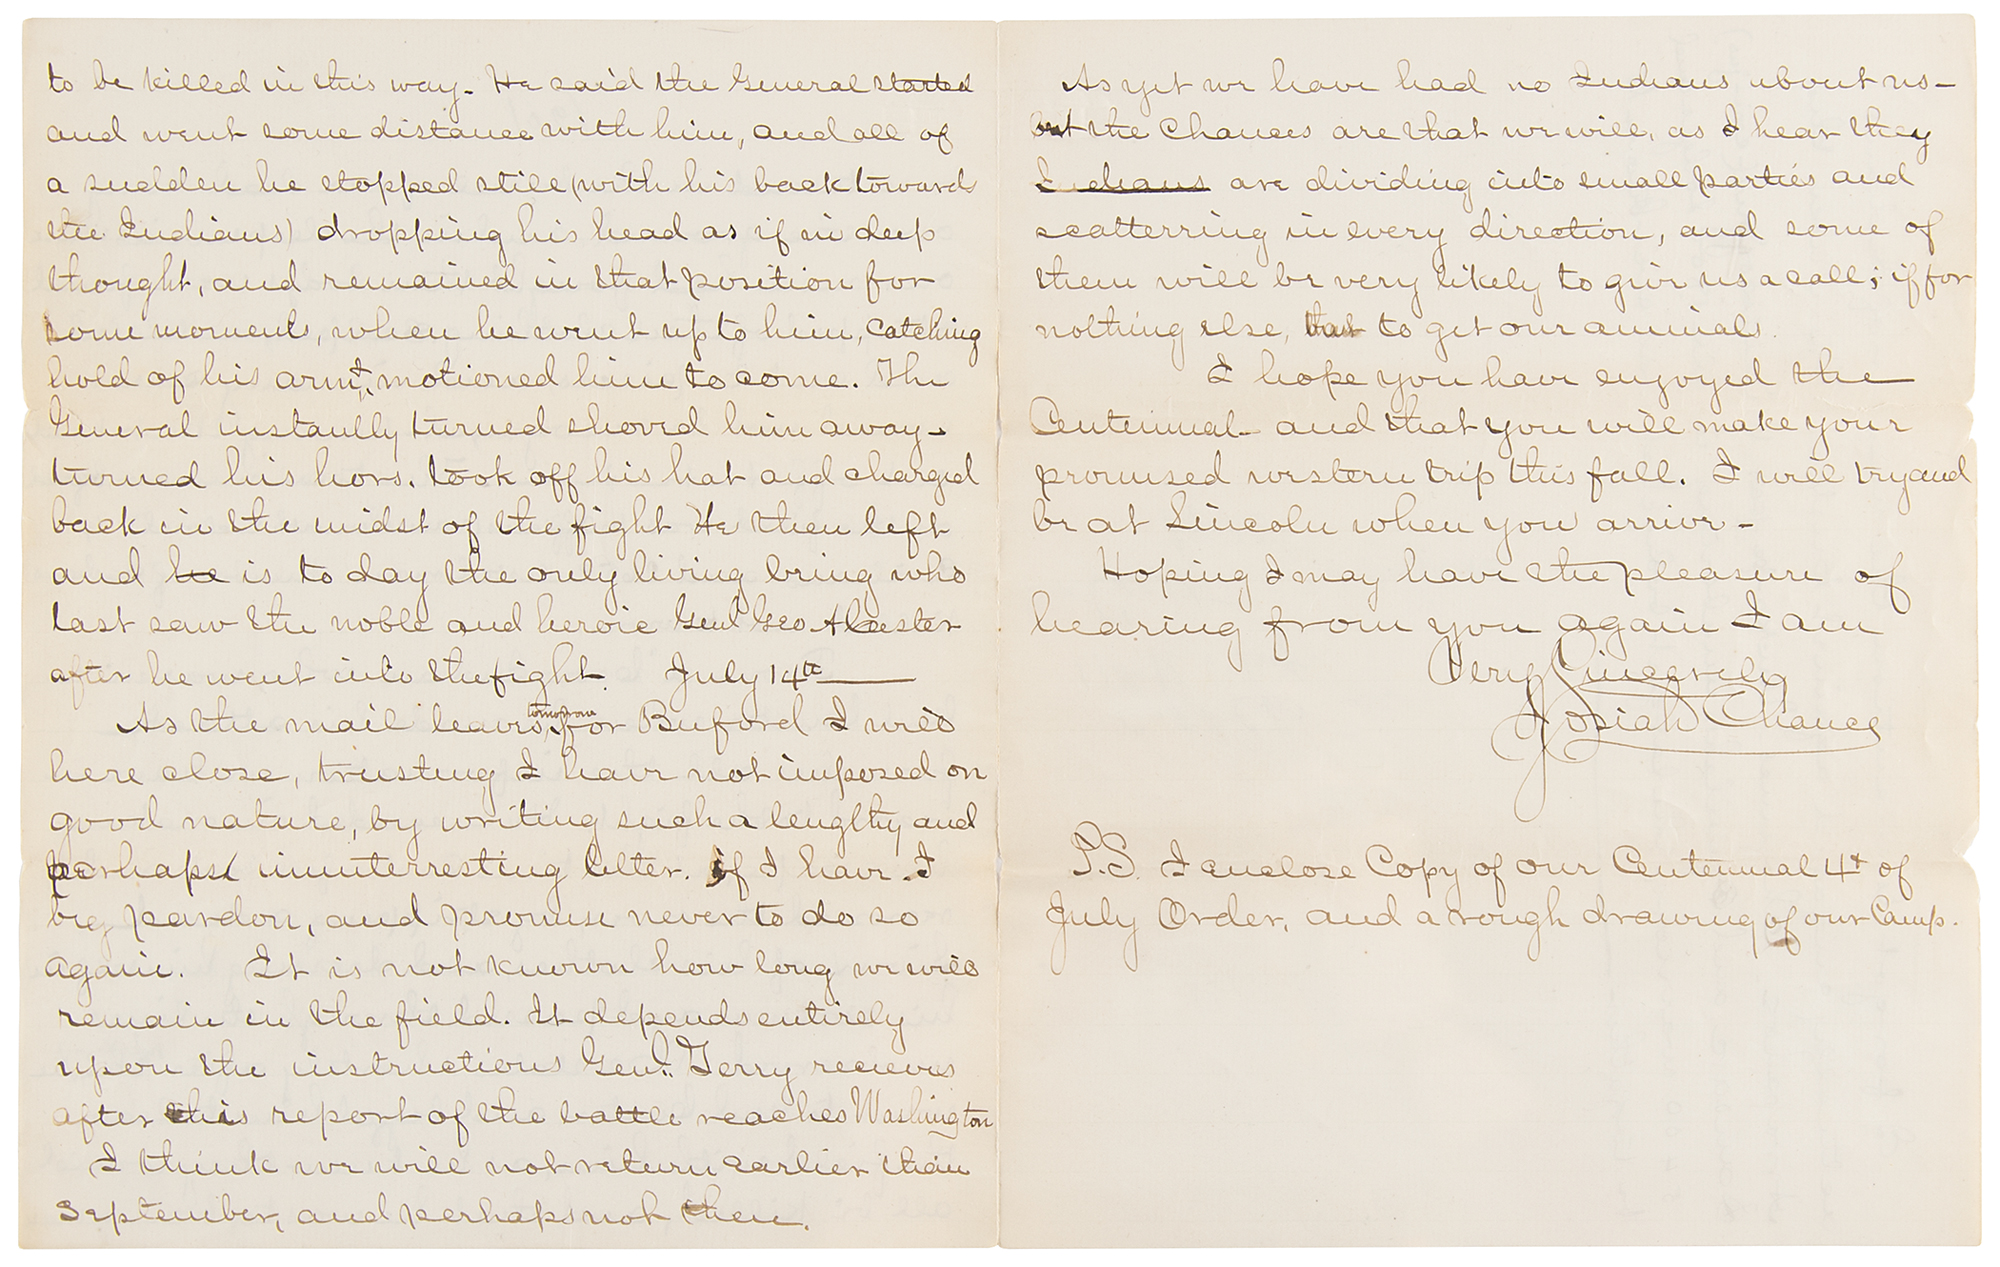 to be killed in this way. He said the General started
and went some distance with him, and all of
a sudden he stopped still (with his back towards
the Indians) dropping his head as if in deep
thought, and remained in that position for
some moments, when he went up to him, catching
hold of his arm, & motioned him to come. The
General instantly turned shoved him away-
turned his hors. took off his hat and charged
back in the midst of the fight He then left
and he is to day the only living being who
last saw the noble and heroic Genl Geo. A Custer
after he went into the fight. July 14th
As the mail leaves tomorrow for Buford I will
here close, trusting I have not imposed on
good nature, by writing such a lengthy and
perhaps uninterresting letter. if I have. I
beg pardon, and promise never to do so
again. It is not known how long we will
remain in the field. It depends entirely
upon the instructions Genl. Terry recieves
after this report of the battle reaches Washington
I think we will not return earlier than
September, and perhaps not then.
As yet we have had no Indians about us-
but the Chances are that we will, as I hear they
Indians are dividing into small parties and
scatterring in every direction, and some of
them will be very likely to give us a call; if for
nothing else, that to get our animals.
I hope you have enjoyed the
Centennial- and that you will make your
promised western trip this fall. I will try and
be at Lincoln when you arrive-
Hoping I may have the pleasure of
hearing from you again I am
Very Sincerely
Josiah Chance
P.S. I enclose Copy of our Centennial 4th of
July Order, and a rough drawing of our Camp.